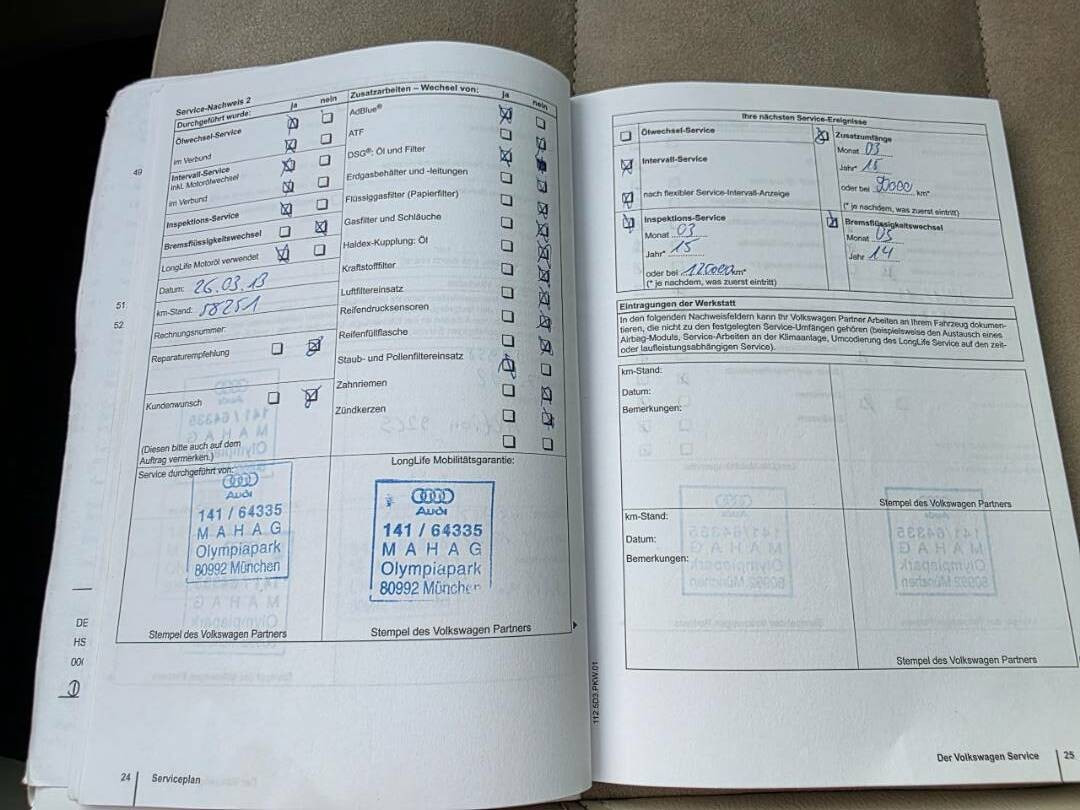 Service-Nachweis 2
Durchgeführt wurde: ja nein
Ölwechsel-Service
im Verbund
49
Intervall-Service
inkl. Motorölwechsel
im Verbund
Inspektions-Service
Bremsflüssigkeitswechsel
LongLife Motoröl verwendet
Datum: 26.03.13
51
km-Stand: 58251
52
Rechnungsnummer:
Reparaturempfehlung
Kundenwunsch
(Diesen bitte auch auf dem
Auftrag vermerken.)
Zusatzarbeiten – Wechsel von: ja nein
AdBlue®
ATF
DSG®: Öl und Filter
Erdgasbehälter und -leitungen
Flüssiggasfilter (Papierfilter)
Gasfilter und Schläuche
Haldex-Kupplung: Öl
Kraftstofffilter
Luftfiltereinsatz
Reifendrucksensoren
Reifenfüllflasche
Staub- und Pollenfiltereinsatz
Zahnriemen
Zündkerzen
Service durchgeführt von:
Audi
141 / 64335
M A H A G
Olympiapark
80992 München
Stempel des Volkswagen Partners
LongLife Mobilitätsgarantie:
Audi
141 / 64335
M A H A G
Olympiapark
80992 München
Stempel des Volkswagen Partners
DE
HS
24 Serviceplan
Ihre nächsten Service-Ereignisse
Ölwechsel-Service
Intervall-Service
nach flexibler Service-Intervall-Anzeige
Inspektions-Service
Monat 03
Jahr* 15
oder bei 120000 km*
(* je nachdem, was zuerst eintritt)
Zusatzumfänge
Monat 03
Jahr* 15
oder bei 90000 km*
(* je nachdem, was zuerst eintritt)
Bremsflüssigkeitswechsel
Monat 03
Jahr 14
Eintragungen der Werkstatt
In den folgenden Nachweisfeldern kann Ihr Volkswagen Partner Arbeiten an Ihrem Fahrzeug dokumen-
tieren, die nicht zu den festgelegten Service-Umfängen gehören (beispielsweise den Austausch eines
Airbag-Moduls, Service-Arbeiten an der Klimaanlage, Umcodierung des LongLife Service auf den zeit-
oder laufleistungsabhängigen Service).
km-Stand:
Datum:
Bemerkungen:
Stempel des Volkswagen Partners
km-Stand:
Datum:
Bemerkungen:
Stempel des Volkswagen Partners
112.5D3.PKW.01
Der Volkswagen Service 25